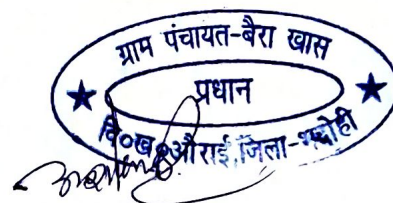 ग्राम पंचायत-बैरा खास
प्रधान
वि०ख०औराई,जिला-भदोही